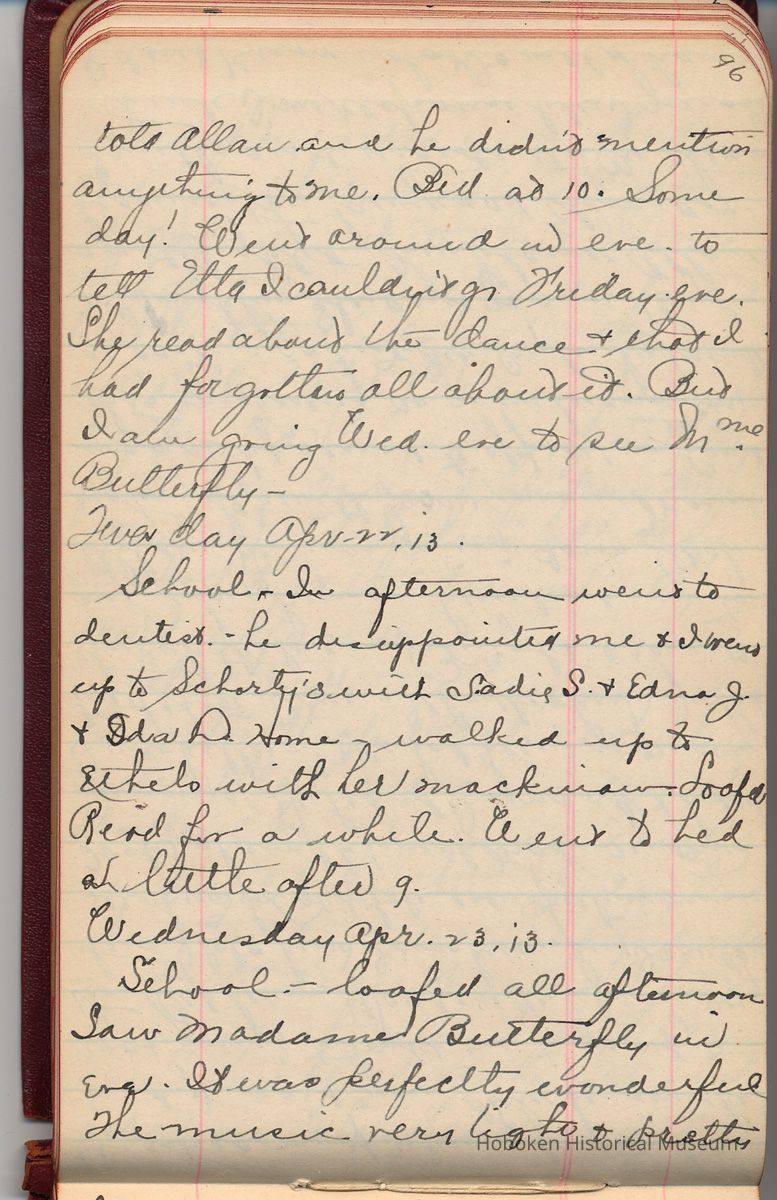 96
told Allan and he didn't mention
anything to me. Bed at 10. Some
day! Went around in eve. to
tell Etta I couldn't go Friday eve.
She read about the dance & that I
had forgotten all about it. But
I am going Wed. eve to see Mme.
Butterfly -
Tuesday Apr. 22, 13.
School. - In afternoon went to
dentist. - he disappointed me & I went
up to Schorty's with Sadie S. & Edna J.
& Ida D. Home - walked up to
Ethels with her mackinaw. Loafed
Read for a while. Went to bed
a little after 9.
Wednesday Apr. 23, 13.
School. - loafed all afternoon
Saw Madame Butterfly in
eve. It was perfectly wonderful
The music very light & pretty
Hoboken Historical Museum